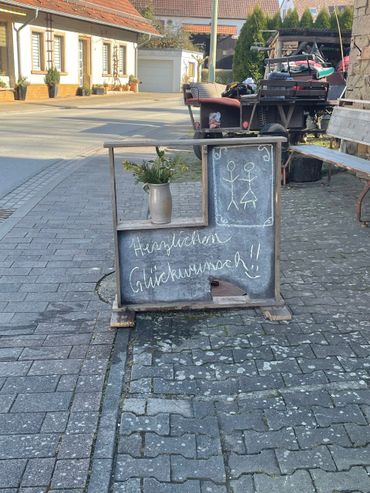 Herzlichen
Glückwunsch!!